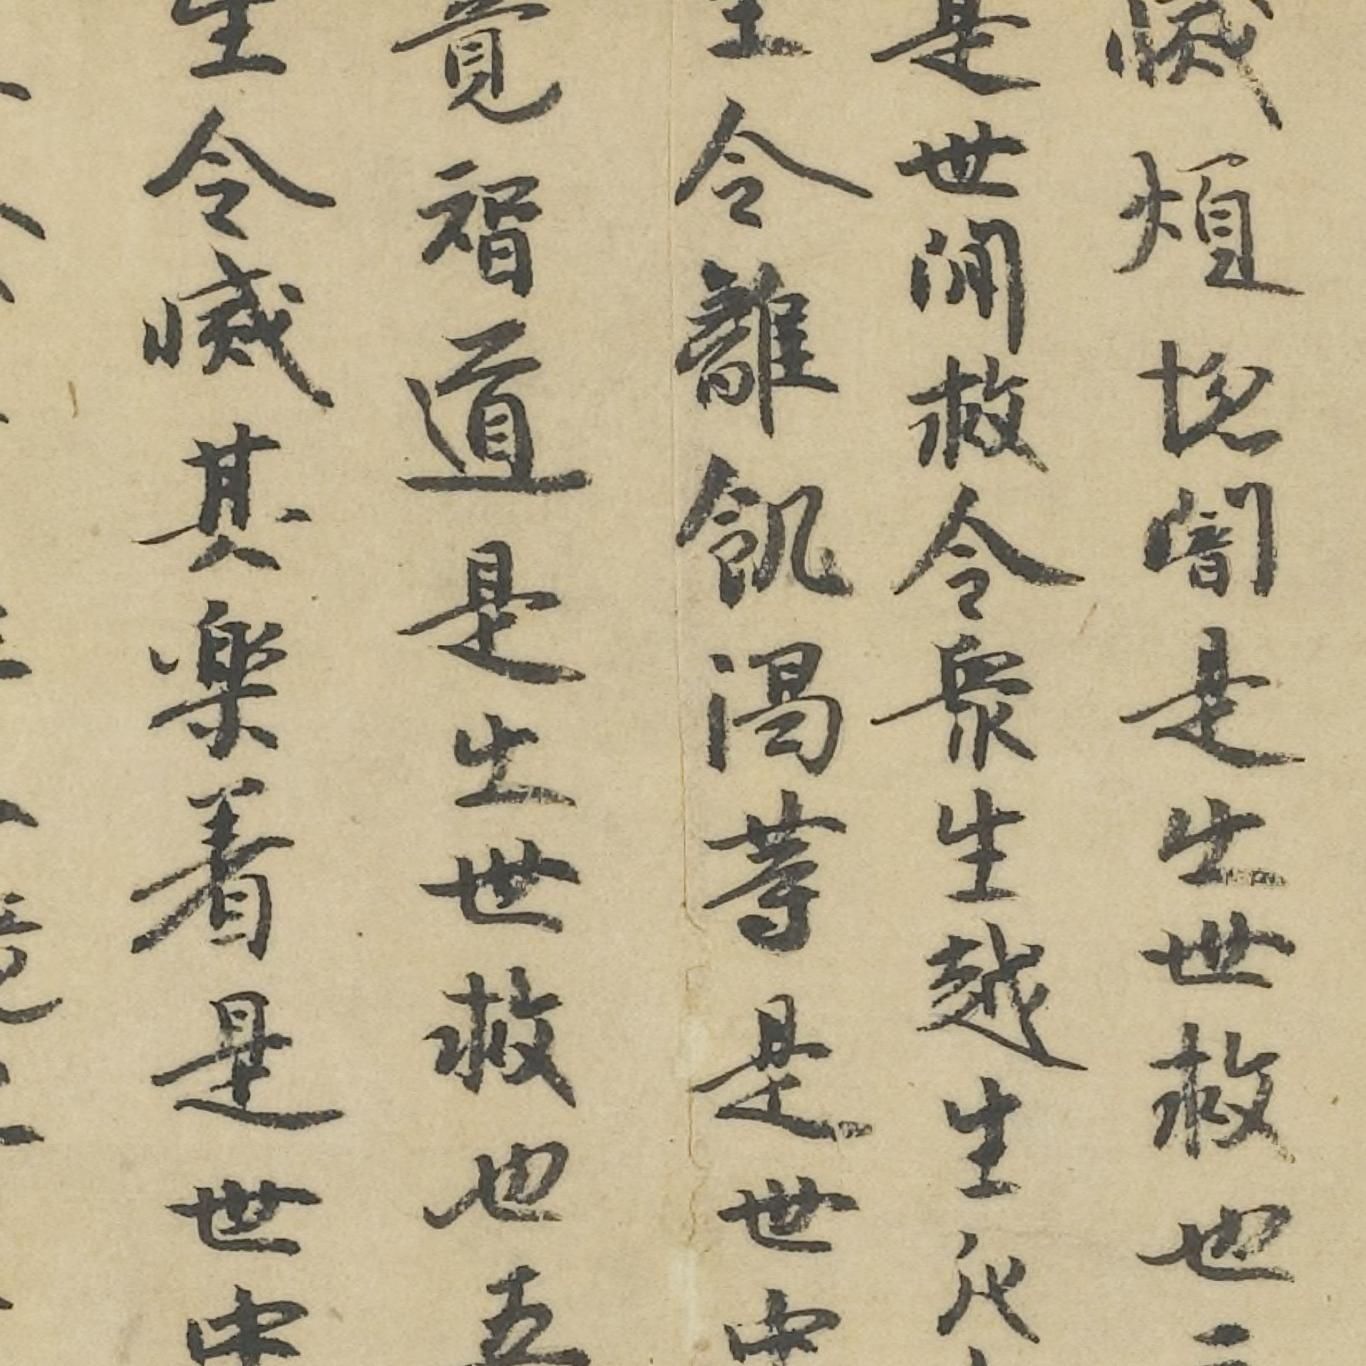 滅煩惱闇是出世救也
是世間救令衆生越生死
生令離飢渴等是世中
覺智道是出世救也五
生令滅其樂着是世中